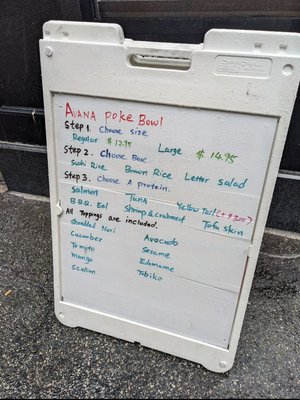 AVANA POKE Bowl
Step 1. Choose size
Regular $12.95 Large $14.95
Step 2. Choose Base.
Sushi Rice Brown Rice Letter salad
Step 3. Choose A protein:
Salmon Tuna Yellow Tail (+$3.00)
B.B.Q. Eel Shrimp & crabmeat Tofu skin
All Toppings are included.
Shredded Nori Avocado
Cucumber Sesame
Tomato Edamame
mango Tobiko
Scallion